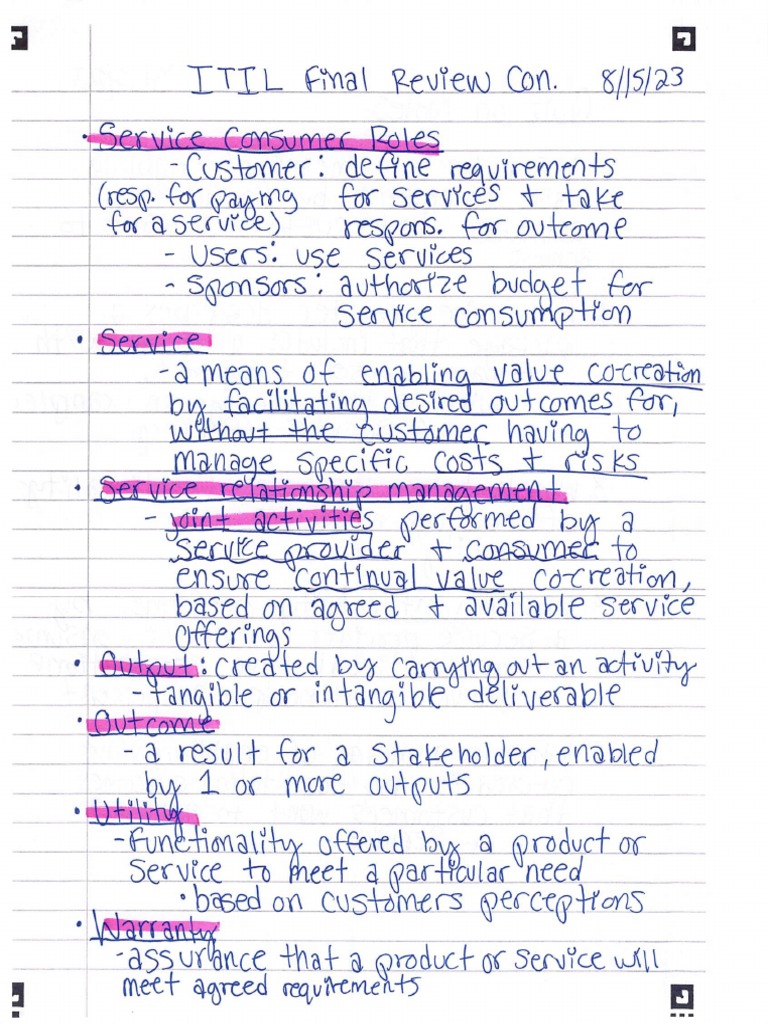 ITIL Final Review Con. 8/15/23
• Service Consumer Roles
- Customer: define requirements
(resp. for paying for services + take
for a service) respons. for outcome
- Users: use services
- Sponsors: authorize budget for
service consumption
• Service
- a means of enabling value co-creation
by facilitating desired outcomes for,
without the customer having to
manage specific costs + risks
• Service relationship management
- joint activities performed by a
service provider + consumer to
ensure continual value co-creation,
based on agreed + available service
offerings
• Output: created by carrying out an activity
- tangible or intangible deliverable
• Outcome
- a result for a stakeholder, enabled
by 1 or more outputs
• Utility
- Functionality offered by a product or
service to meet a particular need
• based on customers perceptions
• Warranty
- assurance that a product or service will
meet agreed requirements